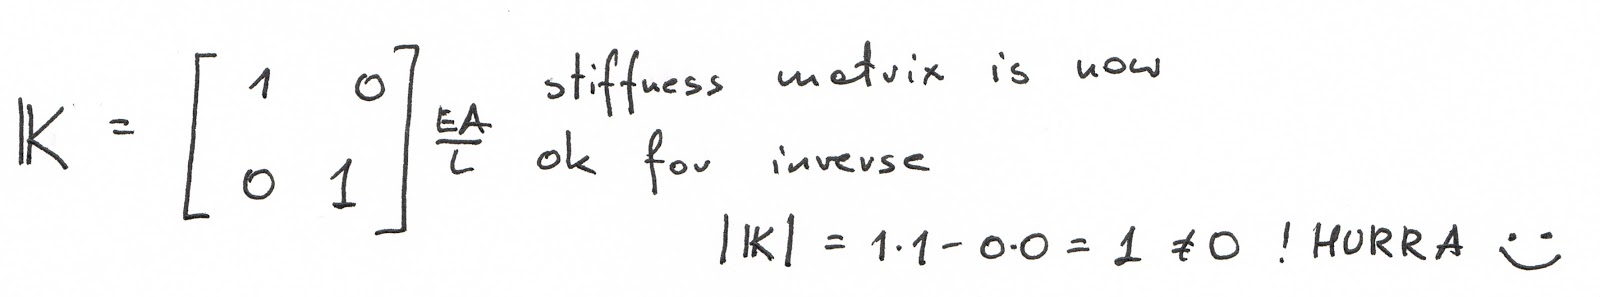 𝕂 = [ 1 0 ; 0 1 ] EA/L stiffness matrix is now
ok for inverse
|𝕂| = 1·1 - 0·0 = 1 ≠ 0 ! HURRA :)